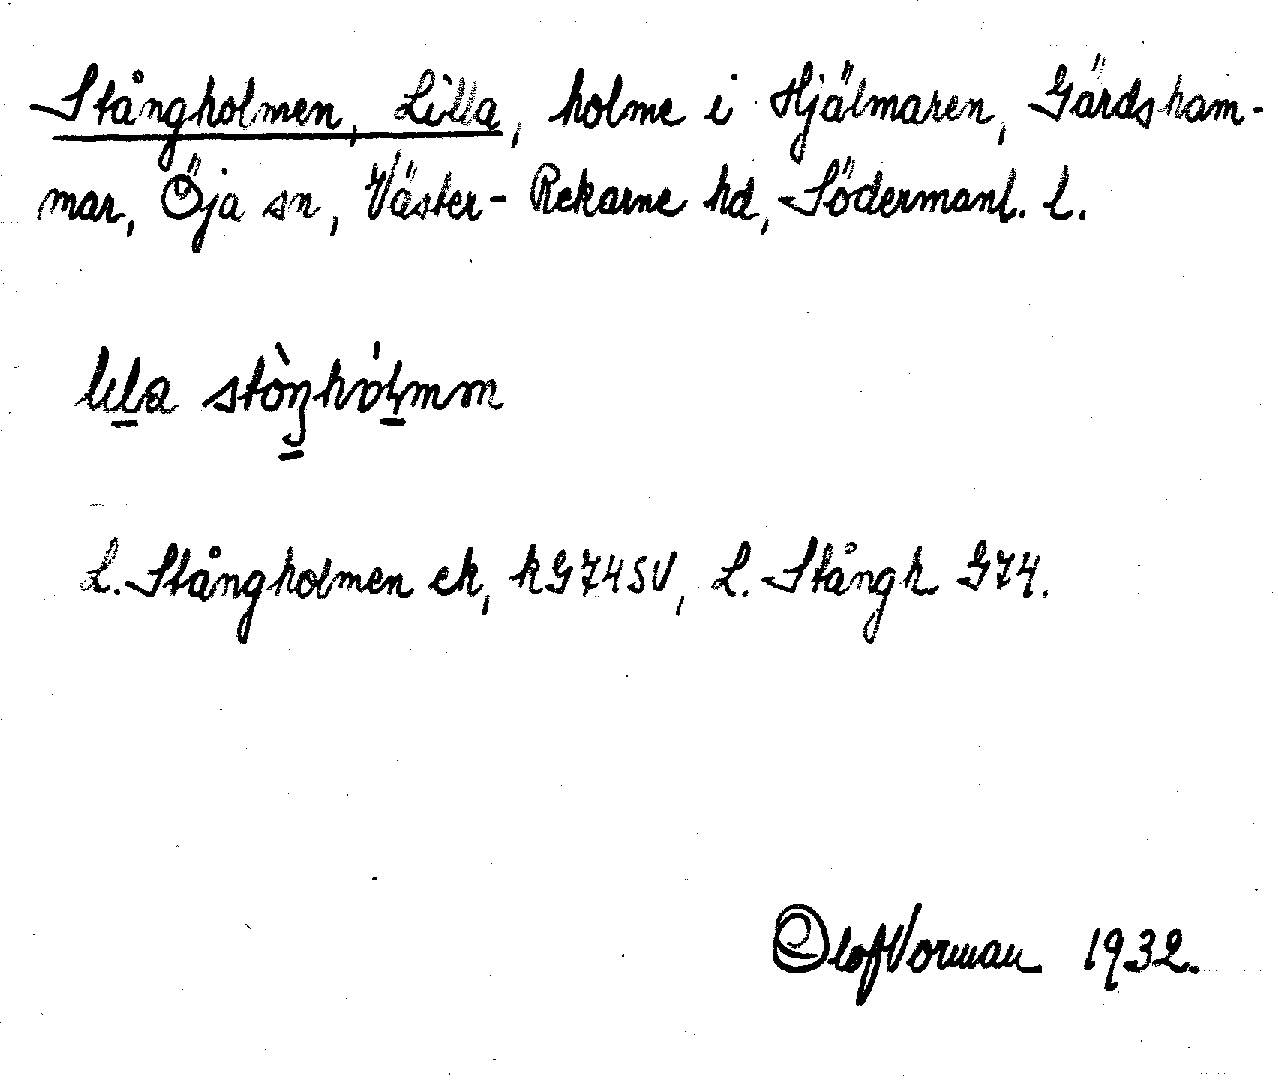 Stångholmen, Lilla, holme i Hjälmaren, Gärdsham-
mar, Öja sn, Väster-Rekarne hd, Södermanl. l.
lila stòŋhólmm
L. Stångholmen ek, kG74SV, L. Stångh G74.
Olof Vorman 1932.